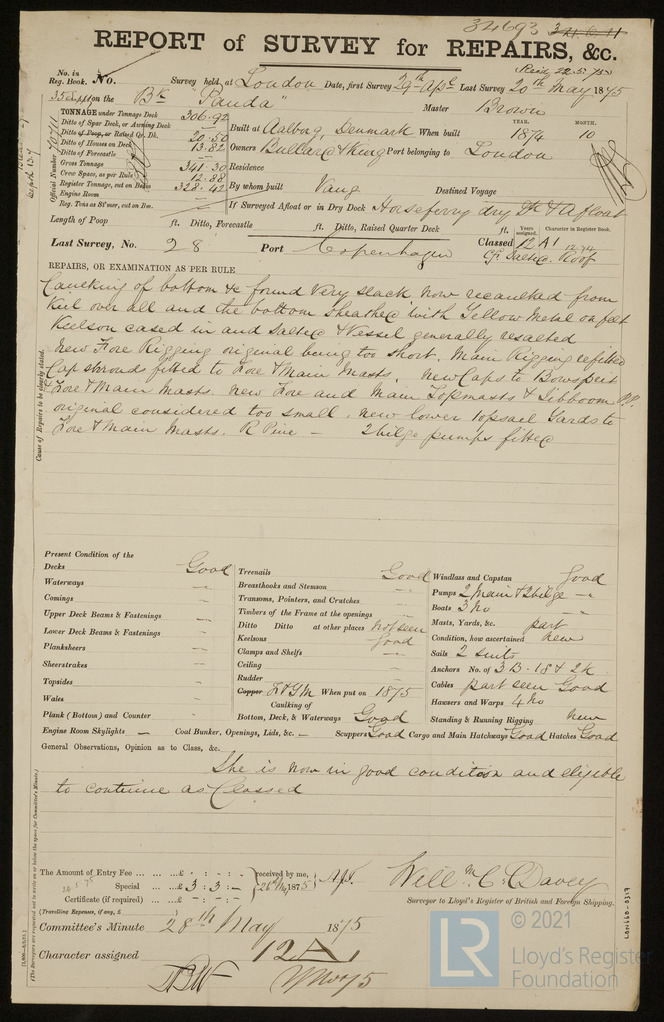 34693
REPORT of SURVEY for REPAIRS, &c.
No. in Reg. Book. No. Survey held at London Date, first Survey 29th Apl Last Survey 20th May 1875
35 Suppt on the Bk "Panda" Master Brown
TONNAGE under Tonnage Deck 306.92
Ditto of Spar Deck, or Awning Deck
Ditto of Poop, or Raised Qr. Dk. 20.50
Ditto of Houses on Deck 13.82
Ditto of Forecastle
Gross Tonnage 341.30
Crew Space, as per Rule 12.88
Register Tonnage, cut on Beam 328.42
Engine Room
Reg. Tons as St'mer, cut on Bm.
Official Number
Built at Aalborg, Denmark When built YEAR. 1874 MONTH. 10
Owners Bullard & King Port belonging to London
Residence
By whom built Vang Destined Voyage
If Surveyed Afloat or in Dry Dock Horseferry dry Dk & Afloat
Length of Poop ft. Ditto, Forecastle ft. Ditto, Raised Quarter Deck ft.
Years assigned. Character in Register Book.
Last Survey, No. 28 Port Copenhagen Classed 12 A1 12.74
Salted. Roof
REPAIRS, OR EXAMINATION AS PER RULE
Cause of Repairs to be clearly stated.
Caulking of bottom &c found very slack now recaulked from
Keel over all and the bottom Sheathed with Yellow Metal on felt
Keelson cased in and Salted & Vessel generally resalted
New Fore Rigging original being too short. Main Rigging refitted
Cap shrouds fitted to Fore & Main Masts. New Caps to Bowsprit
& Fore & Main Masts. new Fore and Main Topmasts & Jibboom PP.
original considered too small. new lower topsail Yards to
Fore & Main Masts. R Pine — 2 bilge pumps fitted
Present Condition of the
Decks Good
Waterways
Comings
Upper Deck Beams & Fastenings
Lower Deck Beams & Fastenings
Planksheers
Sheerstrakes
Topsides
Wales
Plank (Bottom) and Counter
Treenails Good
Breasthooks and Stemson
Transoms, Pointers, and Crutches
Timbers of the Frame at the openings
Ditto Ditto at other places not seen
Keelsons Good
Clamps and Shelfs
Ceiling
Rudder
Copper F & YM When put on 1875
Caulking of
Bottom, Deck, & Waterways Good
Windlass and Capstan Good
Pumps 2 Main & 2 bilge
Boats 3 No
Masts, Yards, &c. part
Condition, how ascertained new
Sails 2 suits
Anchors No. of 3 B - 1 S & 2 K.
Cables part seen Good
Hawsers and Warps 4 No
Standing & Running Rigging New
Engine Room Skylights — Coal Bunker, Openings, Lids, &c. — Scuppers Good Cargo and Main Hatchways Good Hatches Good
General Observations, Opinion as to Class, &c.
She is now in good condition and eligible
to continue as Classed
The Amount of Entry Fee ... £ : :
Special ... £ 3 : 3 : —
Certificate (if required) ... £ : :
received by me,
26 My 1875
(Travelling Expenses, if any, £ )
Willm C. Davey
Surveyor to Lloyd's Register of British and Foreign Shipping.
Committee's Minute 28th May 1875
Character assigned 12 A1
LON660-0317
LR
© 2021
Lloyd's Register
Foundation